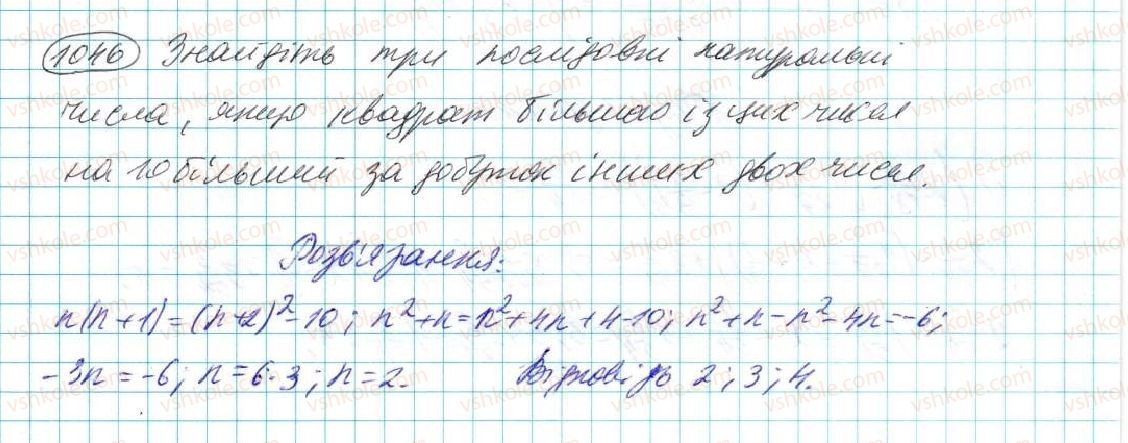 1046 Знайдіть три послідовні натуральні
числа, якщо квадрат більшого із цих чисел
на 10 більший за добуток інших двох чисел.
Розв'язання:
n(n+1)=(n+2)²-10; n²+n=n²+4n+4-10; n²+n-n²-4n=-6;
-3n=-6; n=6:3; n=2. Відповідь 2; 3; 4.